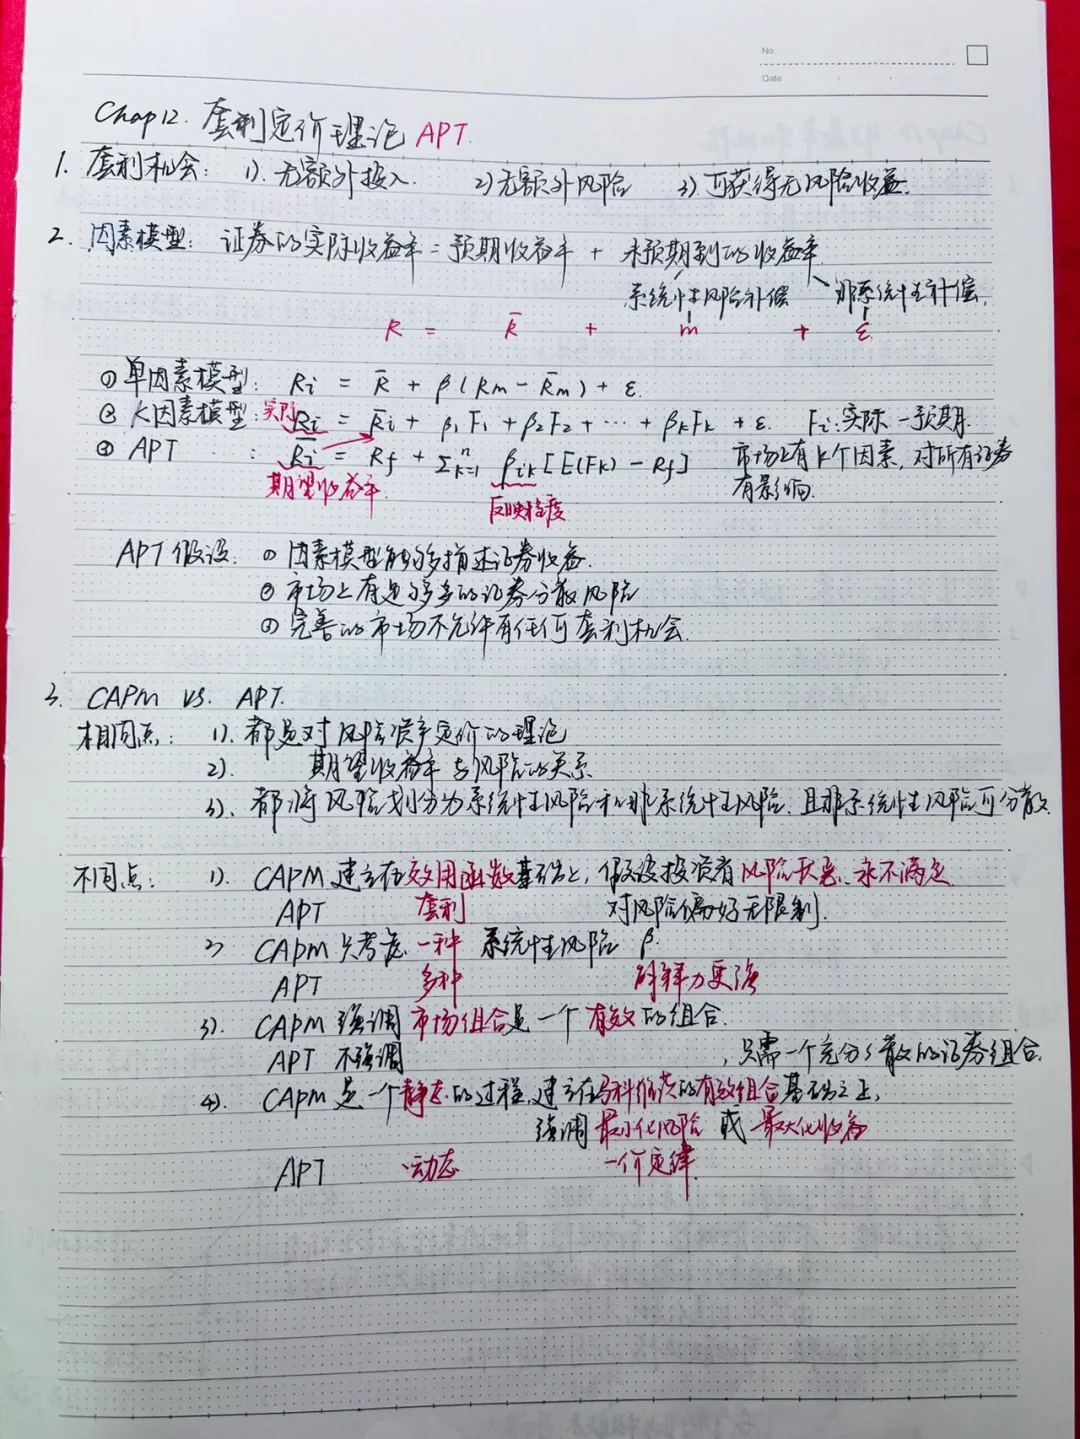 No
Date
Chap12. 套利定价理论 APT.
1. 套利机会: 1). 无额外投入. 2) 无额外风险 3) 可获得无风险收益.
2. 因素模型: 证券的实际收益率 = 预期收益率 + 未预期到的收益率
系统性风险补偿 非系统性补偿.
R = R̄ + m + ε
① 单因素模型: Ri = R̄ + β(Rm − R̄m) + ε.
② K因素模型: 实际 Ri = R̄i + β1F1 + β2F2 + ··· + βkFk + ε. Fi: 实际 — 预期.
③ APT : R̄i = Rf + Σⁿk=1 βik [E(Fk) − Rf] 市场上有k个因素, 对所有证券
期望收益率 反映程度 有影响.
APT假设: ① 因素模型能够描述证券收益.
② 市场上有足够多的证券分散风险
③ 完善的市场不允许有任何套利机会.
3. CAPM VS. APT.
相同点: 1). 都是对风险资产定价的理论
2). 期望收益率与风险的关系
3). 都将风险划分为系统性风险和非系统性风险. 且非系统性风险可分散.
不同点: 1). CAPM 建立在效用函数基础上, 假设投资者风险厌恶、永不满足
APT 套利 对风险偏好无限制.
2) CAPM 只考虑一种 系统性风险 β.
APT 多种 解释力更强
3). CAPM 强调市场组合是一个有效的组合.
APT 不强调 , 只需一个充分分散的证券组合.
4). CAPM 是一个静态的过程, 建立在马科维茨的有效组合基础之上,
强调最小化风险 或 最大化收益
APT 动态 一价定律.